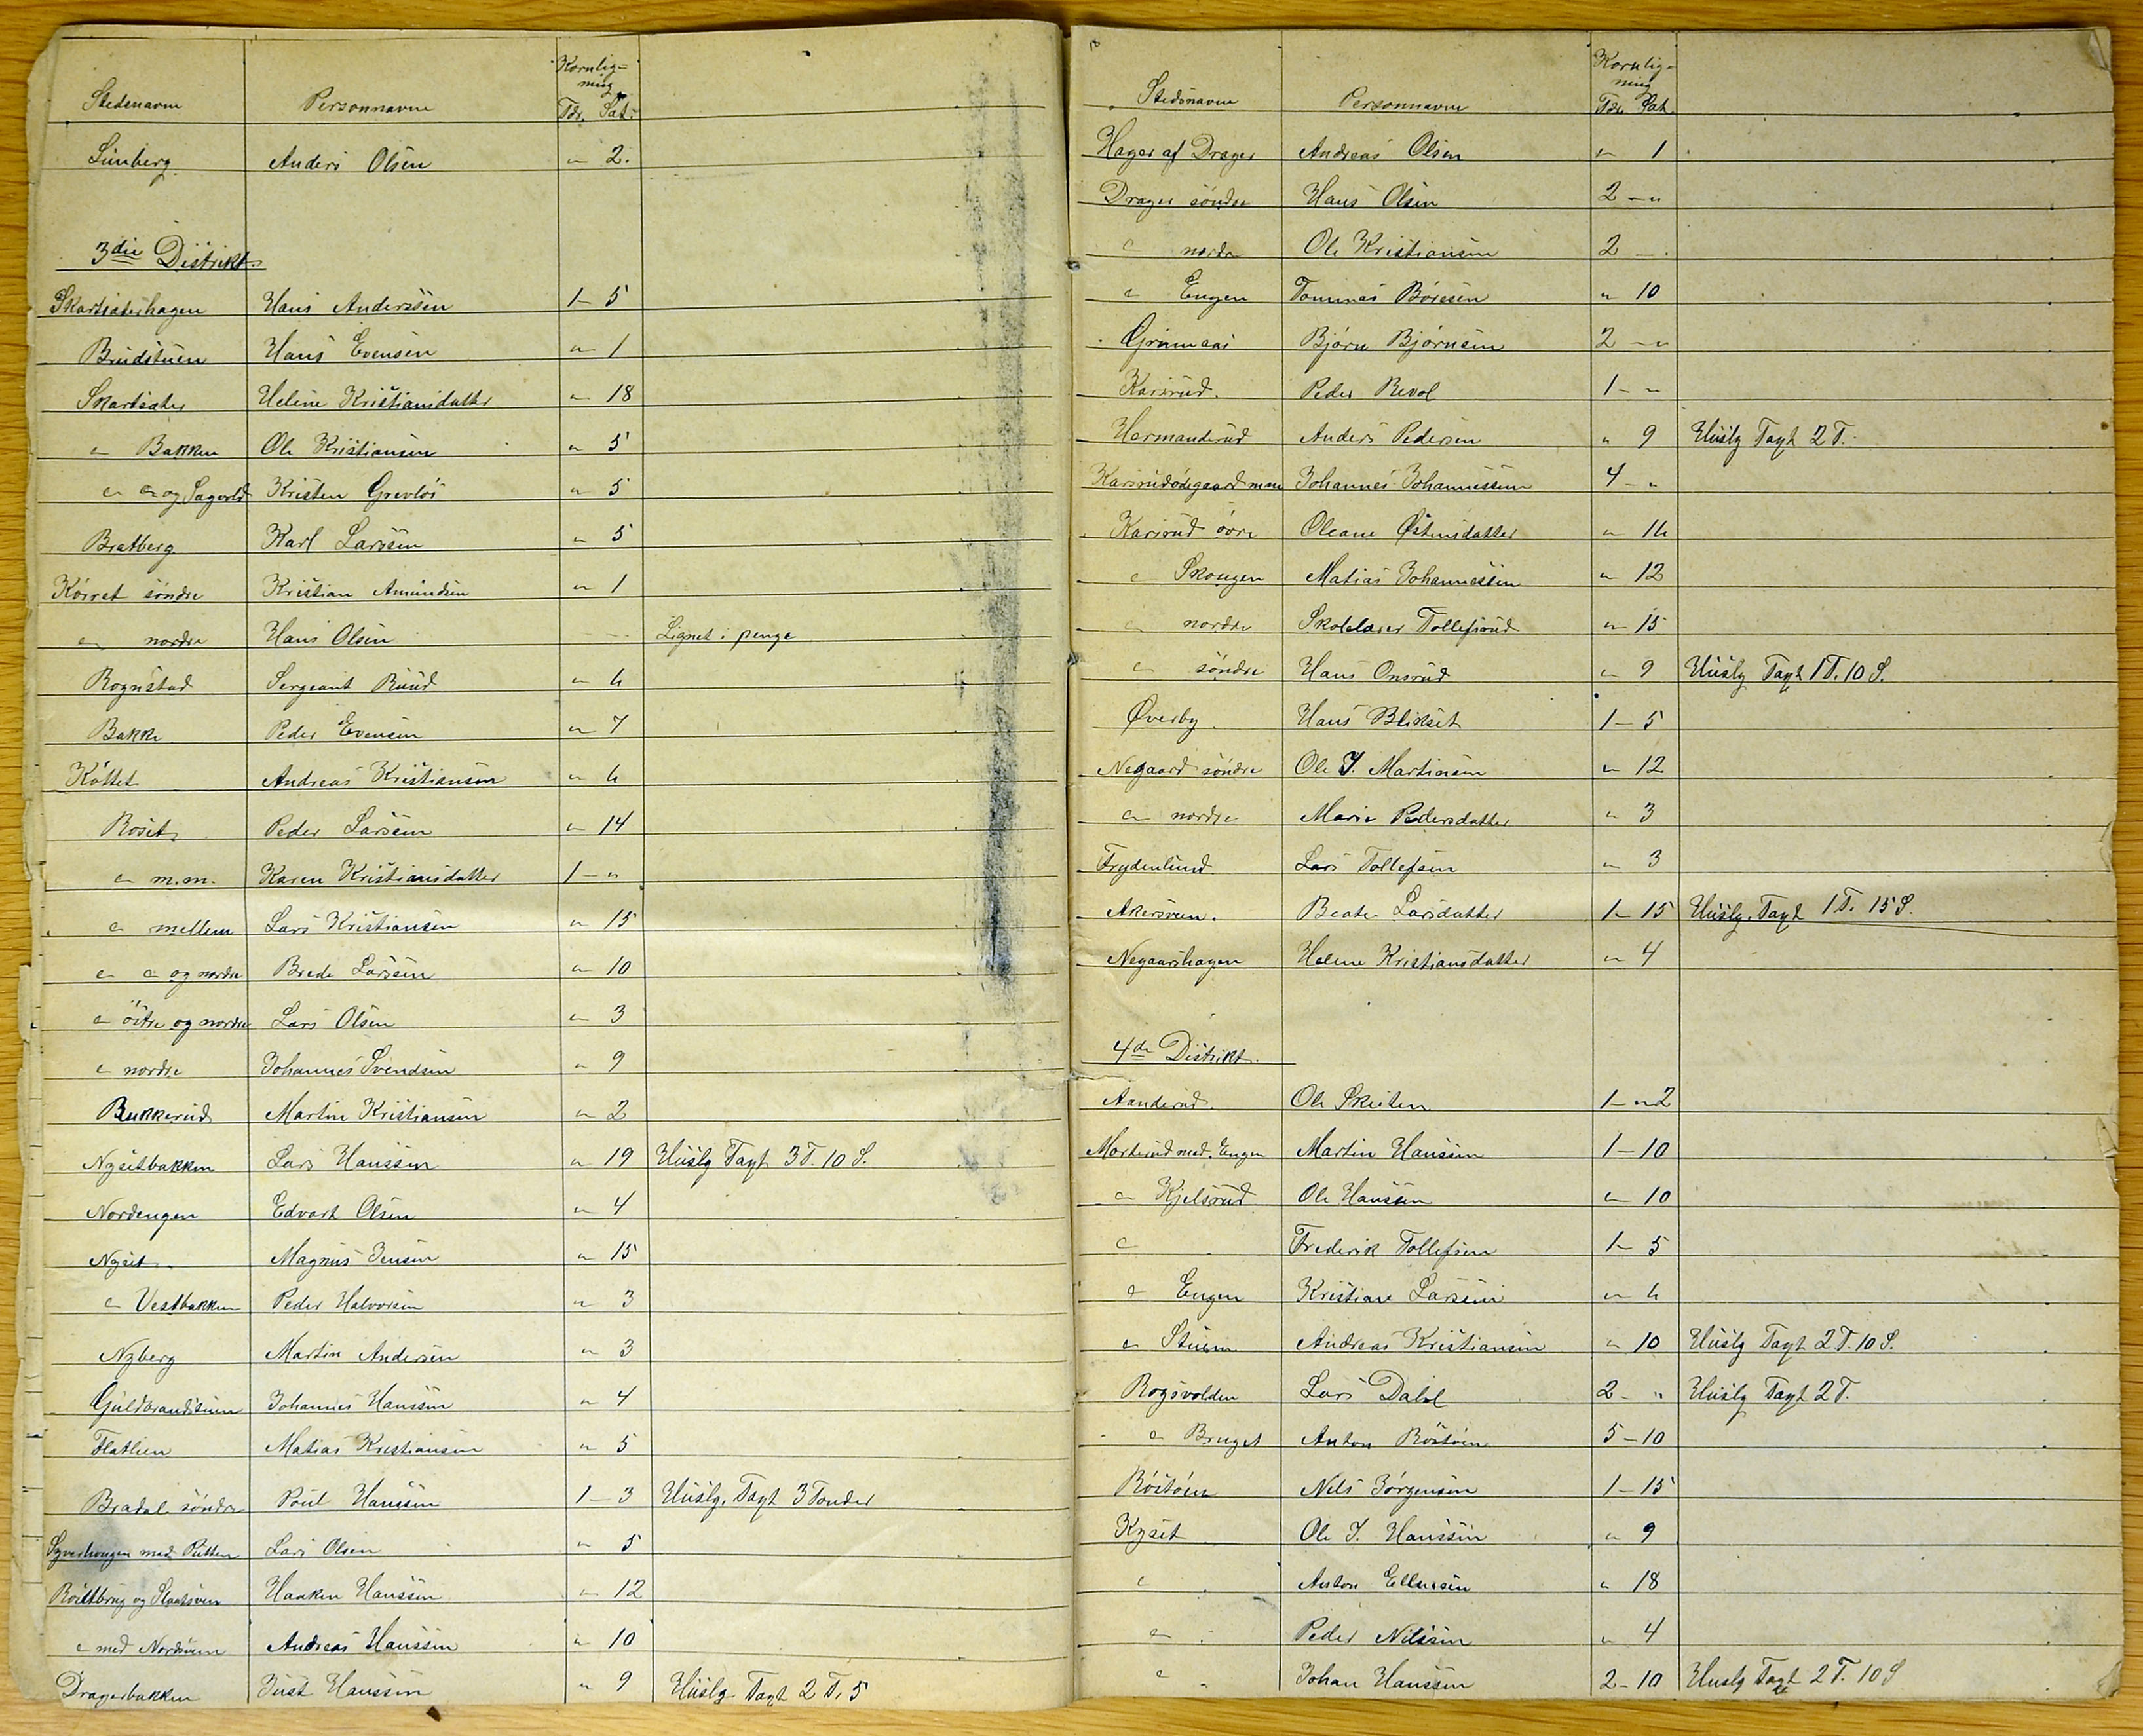 Stedsnavne Personnavne Kornlig-
ning
Tdr. Sat.
Limberg Anders Olsen " 2.
3die Distrikt.
Skartsæterhagen Hans Anderssen 1 - 5
Brudstuen Hans Evensen " 1
Skartsæter Helene Kristiansdatter " 18
" Bakken Ole Kristiansen " 5
" " og Sagvold Kristen Grevlös " 5
Bratberg Karl Larssen " 5
Körret söndre Kristian Amundsen " 1
" nordre Hans Olsen Lignet i penge
Rognstad Sergeant Ruud " 6
Bakke Peder Evensen " 7
Köttet Andreas Kristiansen " 6
Roset Peder Larssen " 14
" m.m. Karen Kristiansdatter 1 - "
" mellem Lars Kristiansen " 15
" " og nordre Brede Larssen " 10
" östre og nordre Lars Olsen " 3
" nordre Johannes Svendsen " 9
Bukkerud Martin Kristiansen " 2
Nysetbakken Lars Hanssen " 19 Huslg Taxt 3 T. 10 S.
Nordengen Edvart Olsen " 4
Nyset Magnus Jensen " 15
" Vestbakken Peder Halvorsen " 3
Nyberg Martin Andersen " 3
Guldbrandstuen Johannes Hanssen " 4
Flatlien Matias Kristiansen " 5
Bradal söndre Poul Hanssen 1 - 3 Huslg. Taxt 3 Tonder
Syverhougen med Putten Lars Olsen " 5
og Haaken Hanssen " 12
" med Andreas Hanssen " 10
Dragerbakken Just Hanssen " 9 Huslg Taxt 2 T. 5
18
Stedsnavne Personnavne Kornlig-
ning
Tdr. Sat.
Hager af Drager Andreas Olsen " 1
Drager söndre Hans Olsen 2 - "
" nordre Ole Kristiansen 2 -
" Engen Tommas Böresen " 10
Grimaas Björn Björnsen 2 - "
Karsrud Peder Revol 1 - "
Hermanderud Anders Pedersen " 9 Huslg Taxt 2 T.
Karsrudödegaard m.m. Johannes Johannessen 4 - "
Karsrud övre Oleane Østensdatter " 16
" Skougen Matias Johannessen " 12
" nordre Skolelærer Tollefsrud " 15
" söndre Hans Onsrud " 9 Huslg Taxt 1 T. 10 S.
Øverby Hans Blikset 1 - 5
Negaard söndre Ole J. Martinsen " 12
" nordre Marie Pedersdatter " 3
Frydenlund Lars Tollefsen " 3
Akersveen. Beate Larsdatter 1 - 15 Huslg. Taxt 1 T. 15 S.
Negaarshagen Helene Kristiansdatter " 4
4de Distrikt.
Aanderud. Ole Skeiten 1 - " 2
Morterud med Engen Martin Hanssen 1 - 10
" Kjelsrud Ole Hanssen " 10
" Frederik Tollefsen 1 - 5
" Engen Kristiane Larssen " 6
" Stuen Andreas Kristiansen " 10 Huslg Taxt 2 T. 10 S.
Rogsvolden Lars Dahl 2 - " Huslg Taxt 2 T.
" Bruget Anton Röstöen 5 - 10
Röstöen Nils Jörgensen 1 - 15
Kyset Ole J. Hanssen " 9
" Anton Ellevsen " 18
" Peder Nilssen " 4
" Johan Hanssen 2 - 10 Huslg Taxt 2 T. 10 S